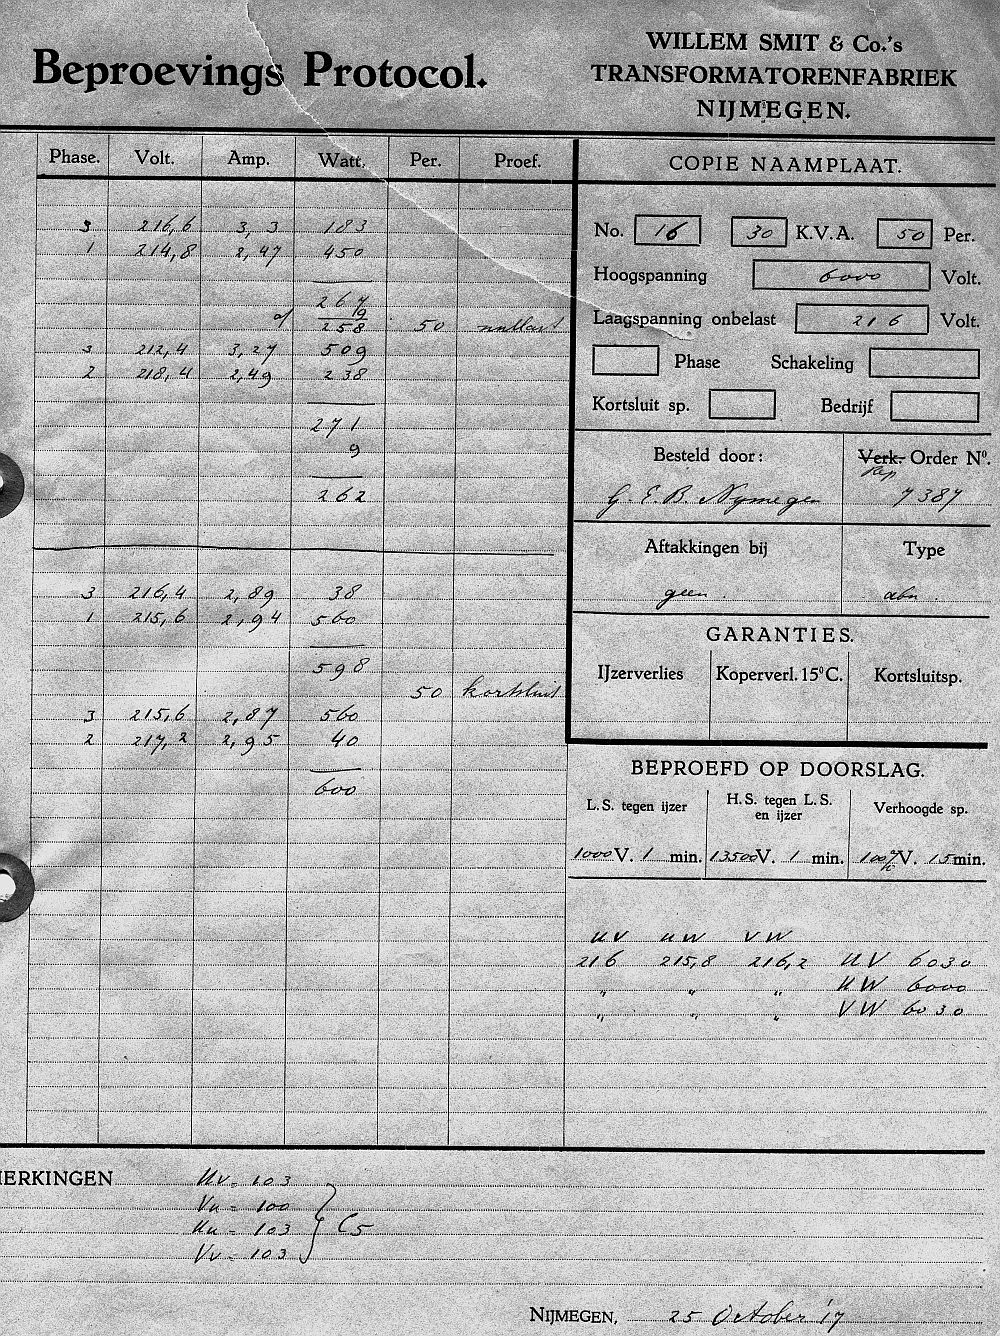 Beproevings Protocol.
WILLEM SMIT & Co.'s
TRANSFORMATORENFABRIEK
NIJMEGEN.
Phase. Volt. Amp. Watt. Per. Proef.
3 216,6 3,3 183
1 214,8 2,47 450
267
19
258 50 nullast
3 212,4 3,27 509
2 218,4 2,49 238
271
9
262
3 216,4 2,89 38
1 215,6 2,94 560
598
50 kortsluit
3 215,6 2,87 560
2 217,2 2,95 40
600
COPIE NAAMPLAAT.
No. 16 30 K.V.A. 50 Per.
Hoogspanning 6000 Volt.
Laagspanning onbelast 216 Volt.
Phase Schakeling
Kortsluit sp. Bedrijf
Besteld door: Verk. Order No.
G. E. B. Nymegen 7387
Aftakkingen bij Type
geen. abn.
GARANTIES.
IJzerverlies Koperverl. 15°C. Kortsluitsp.
BEPROEFD OP DOORSLAG.
L.S. tegen ijzer H.S. tegen L.S. en ijzer Verhoogde sp.
1000 V. 1 min. 13500 V. 1 min. 100% V. 15 min.
UV UW VW
216 215,8 216,2 UV 6030
" " " UW 6000
" " " VW 6030
MERKINGEN Uv = 103
Vu = 100
Uu = 103
Vv = 103
C5
NIJMEGEN, 25 October '17